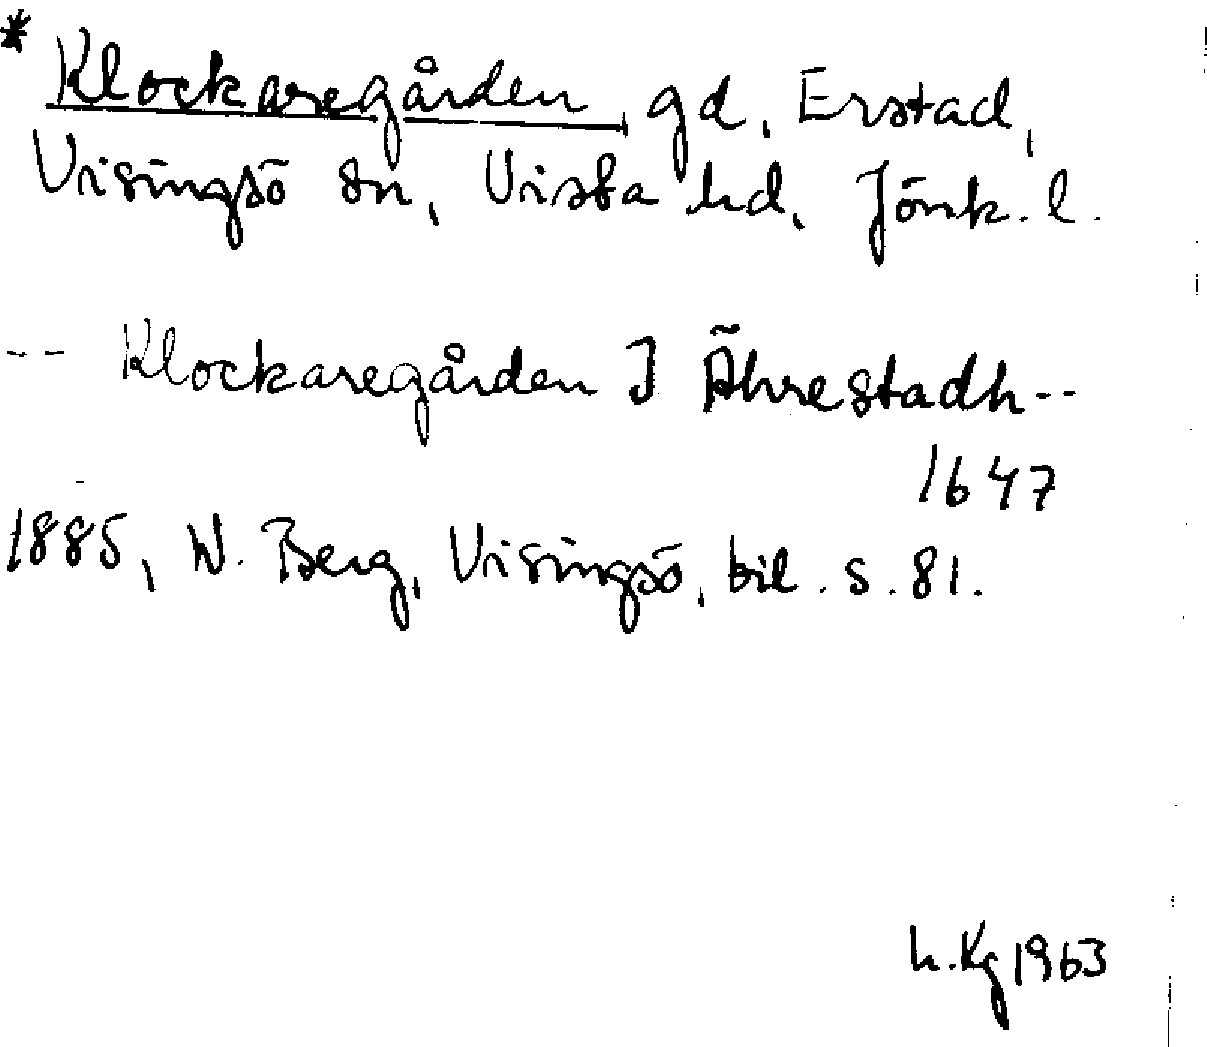 * Klockaregården, gd, Erstad,
Visingsö sn, Vista hd, Jönk. l.
-- Klockaregården I Åhrestadh --
1647
1885, W. Berg, Visingsö, bil. s. 81.
h.Kg 1963